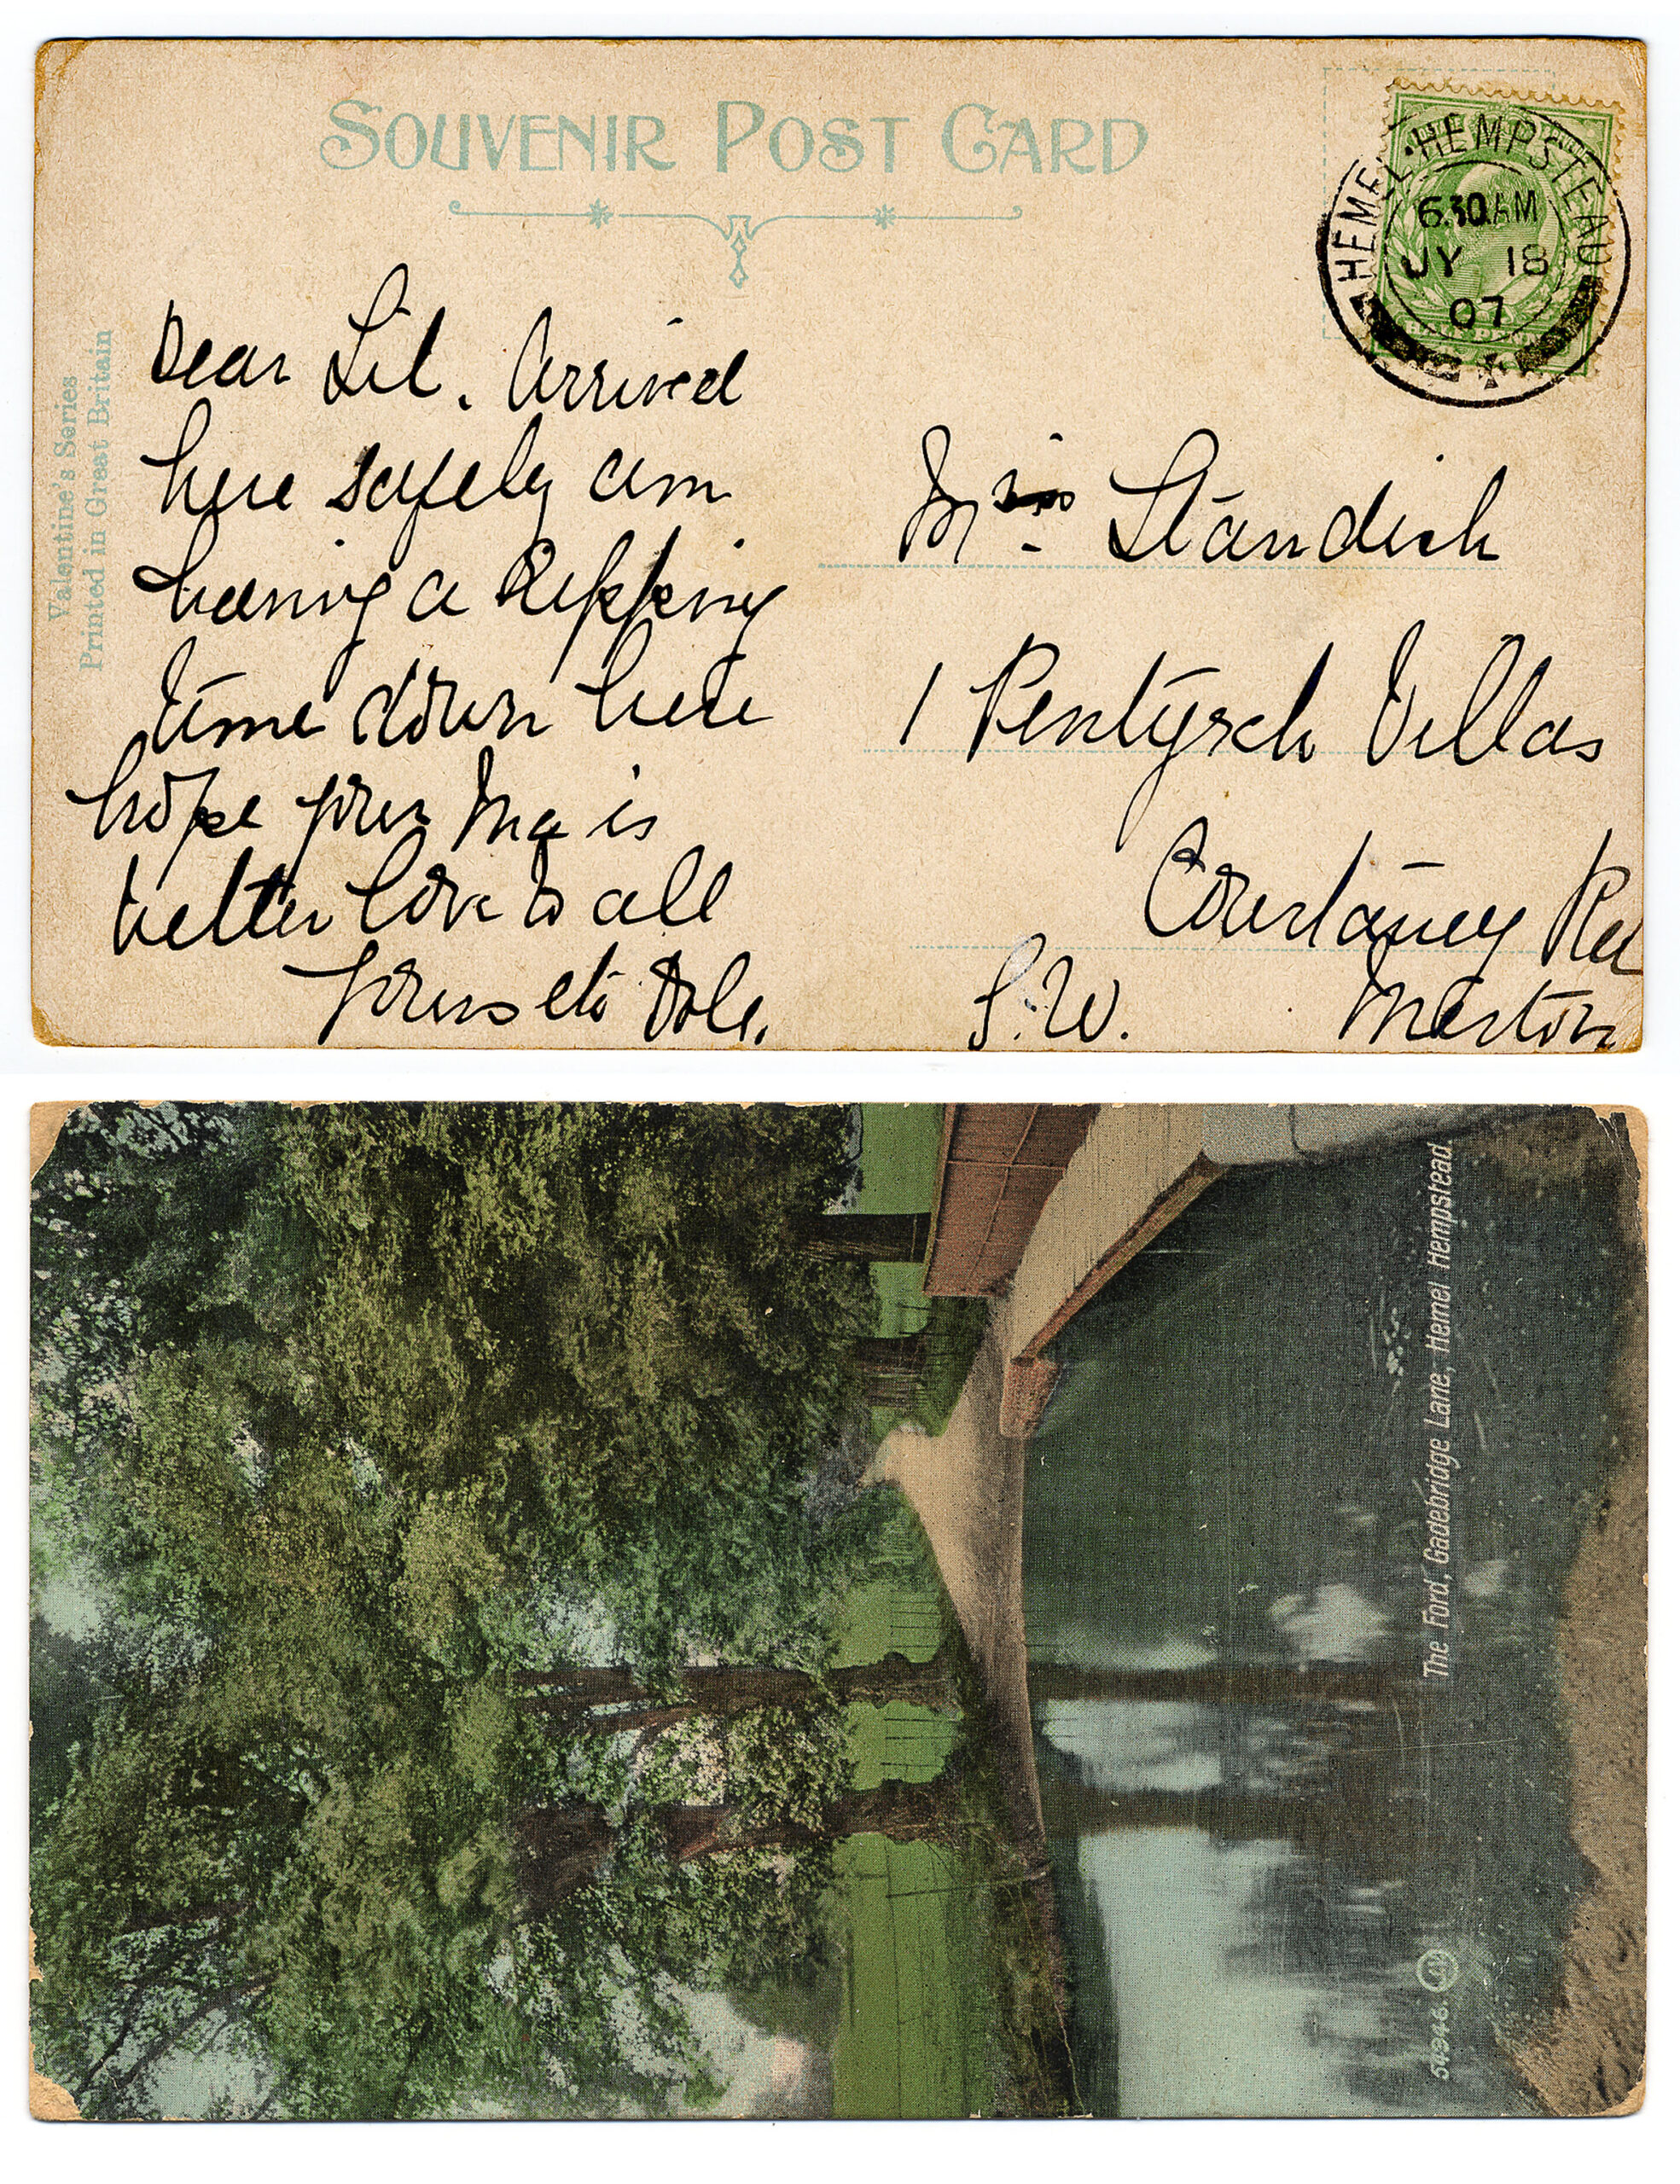 SOUVENIR POST CARD
Valentine's Series
Printed in Great Britain
HEMEL·HEMPSTEAD
6.30AM
JY 18
07
Dear Lil. Arrived
here safely am
having a Ripping
time down here
hope your Ma is
better love to all
yours etc
Standish
1 Pentyrch Villas
Courtaney Rd
S.W. Merton
The Ford, Gadebridge Lane, Hemel Hempstead.